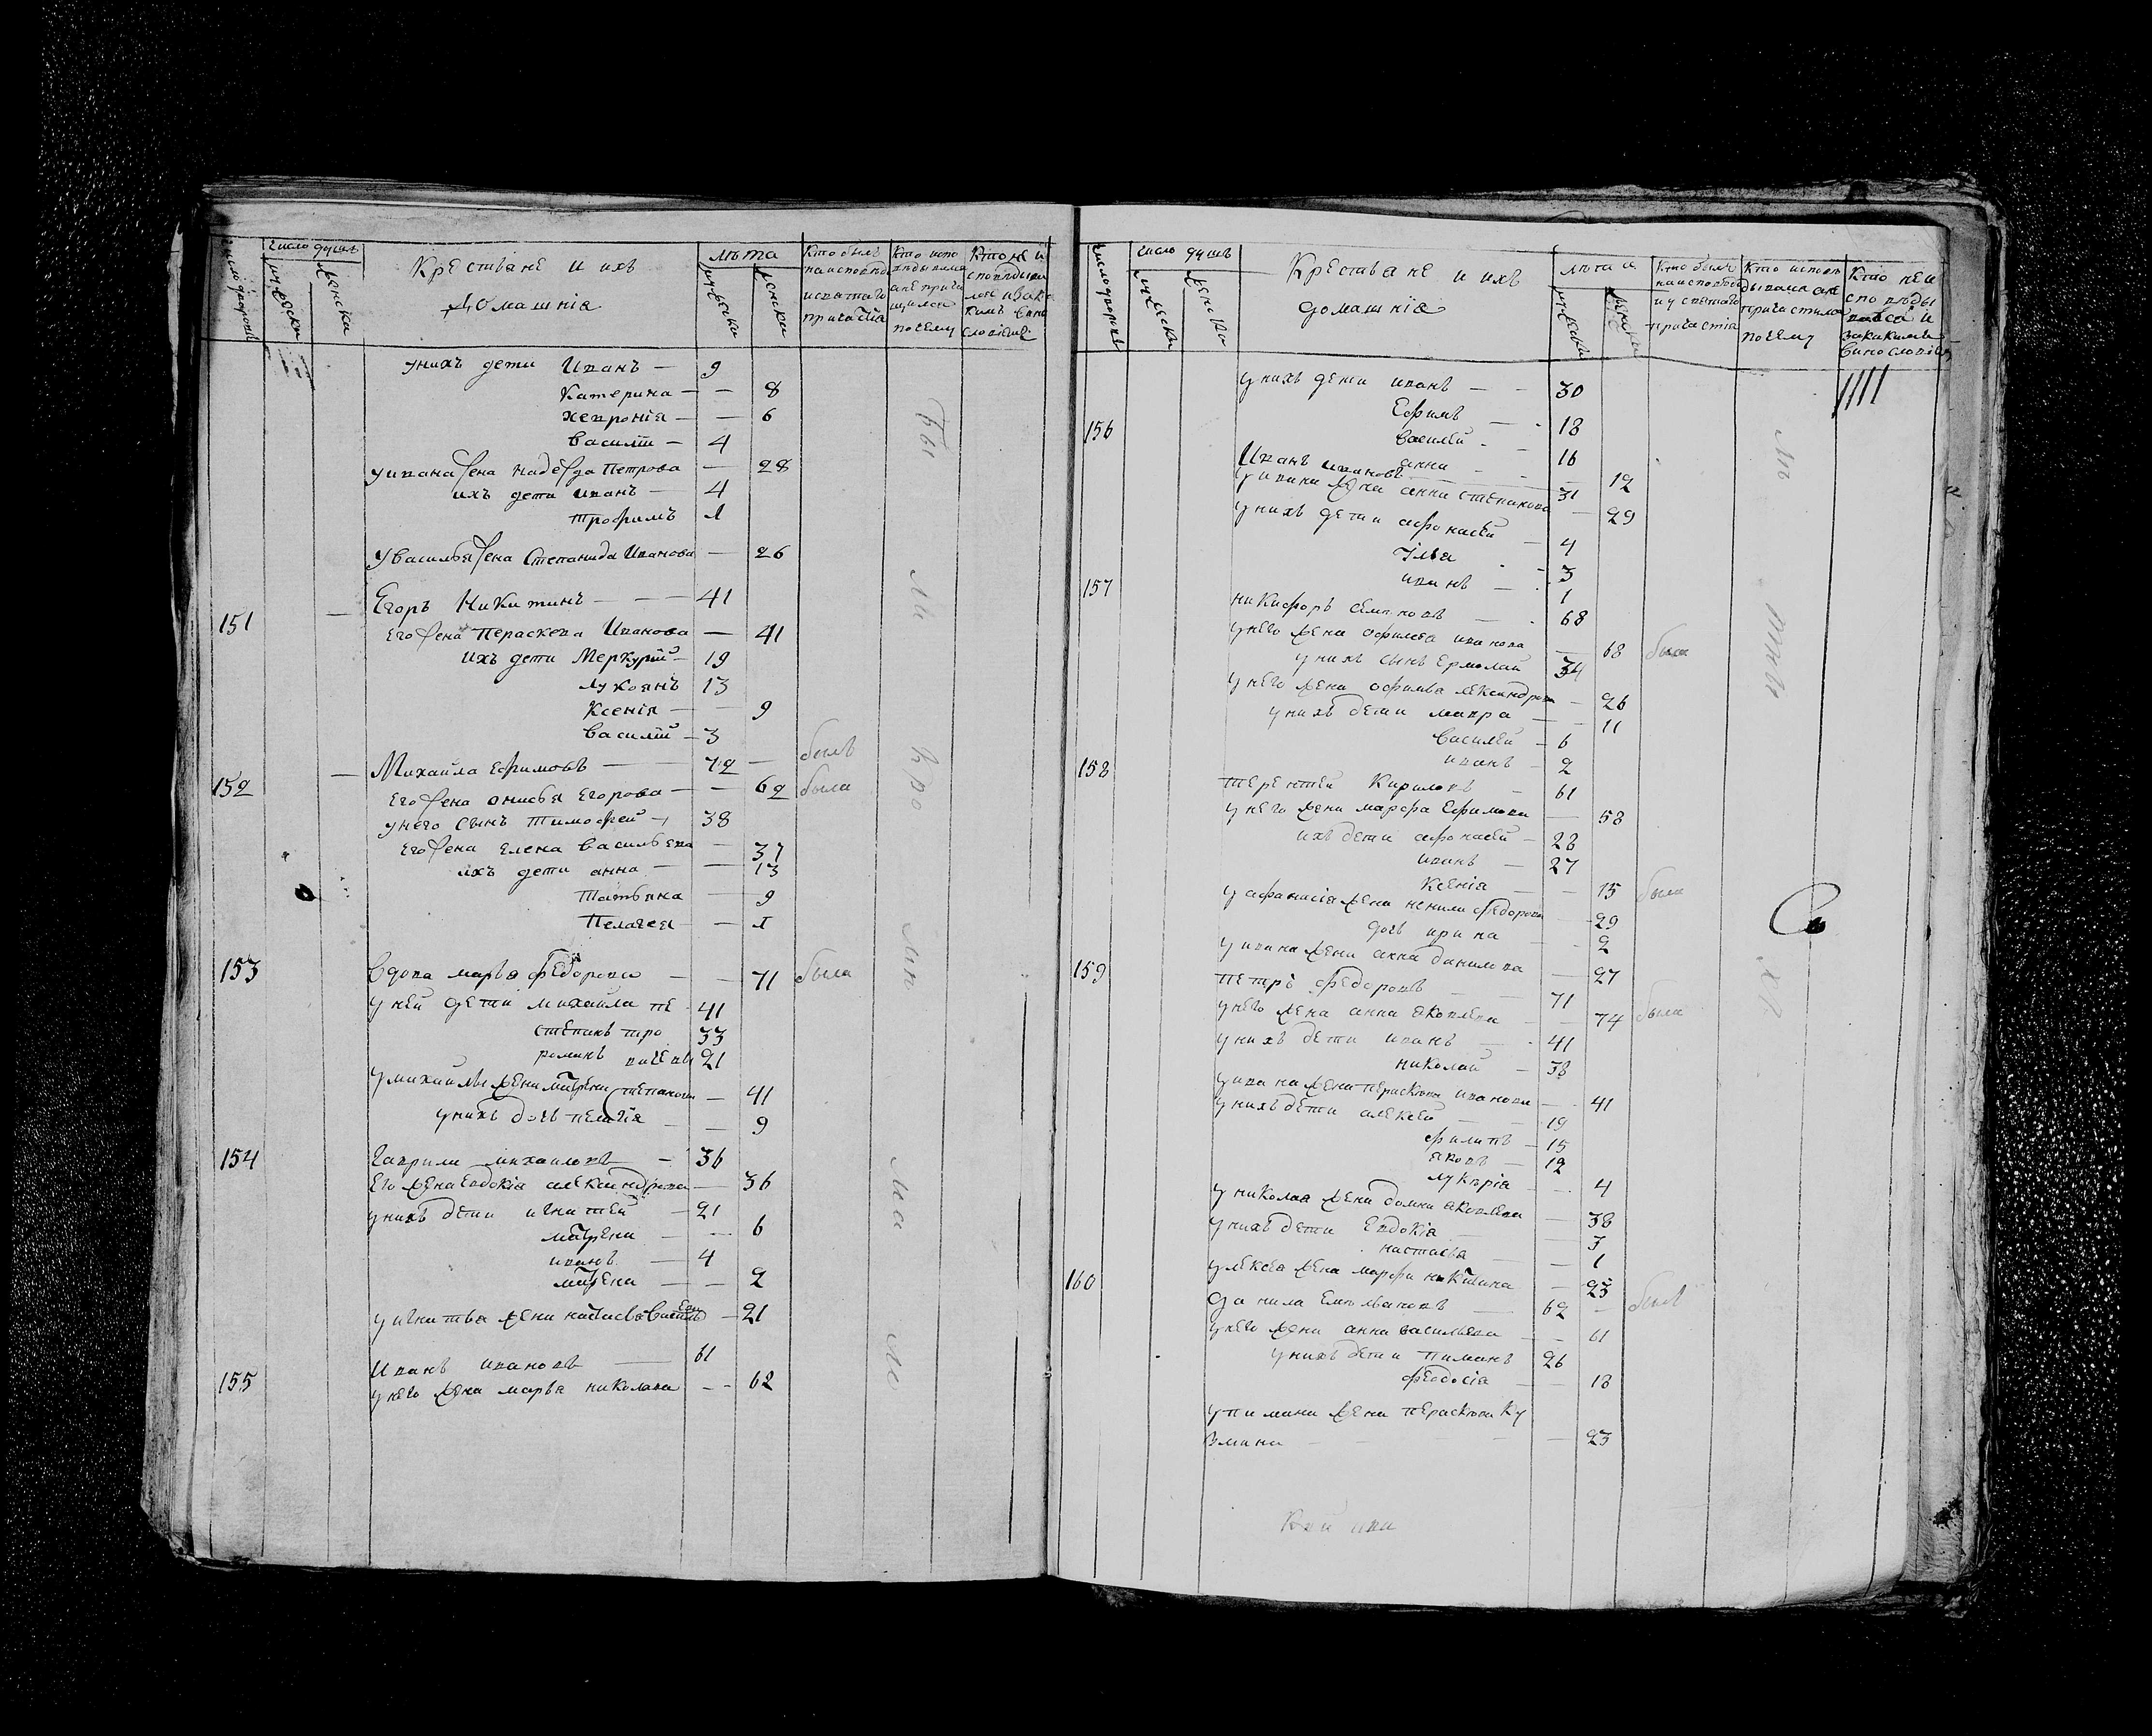 число дворовъ
число душъ
мужеска
женска
Крестьяне и ихъ
домашнія
лѣта
мужеска
женска
Кто былъ
на исповѣди
и святаго
причастія
Кто испо
вѣдывался
а не прича
щился
почему
Кто не и
сповѣдыва
лся и за ка
кимъ вино
словіемъ
у нихъ дети Иванъ — 9
Катерина — — 8
Хевронія — — 6
Василій — 4
у ивана жена Надежда Петрова — 28
ихъ дети иванъ — 4
Трофимъ 1
у Василья жена Степанида Иванова — 26
151 Егоръ Никитинъ — — — 41
его жена Параскева Иванова — 41
ихъ дети Меркурій — 19
Лукоянъ 13
Ксенія — — 9
Василій — 3
152 Михайла Ефимовъ — 72 — былъ
Его жена онисья Егорова — — 62 была
у него сынъ Тимофей — 38
Его жена Елена Васильева — 37
ихъ дети анна — — 13
Татьяна — 9
Пелагея — 1
153 Вдова марья федорова — — 71 была
у ней дети михайла пе 41
степанъ тро 33
романъ вичевы 21
у михайлы жена матрена степанова — 41
у нихъ дочь пелагія — — 9
154 Гаврила михаиловъ — 36
Его жена Евдокія александрова — 36
у нихъ дети игнатей — 21
матрена — — 6
иванъ — 4
матрена — — 2
у игнатья жена настасья Василь
ева — 21
155 Иванъ ивановъ — 61
у него жена марья николаева — — 62
Бы ли
число дворовъ
число душъ
мужеска
женска
Крестьяне и ихъ
домашнія
лѣта
мужеска
женска
Кто былъ
на исповѣди
и у святаго
причастія
Кто исповѣ
дывался а не
причастился
почему
Кто не и
сповѣды
вался и
за какимъ
винословіемъ
у нихъ дети иванъ — — 30
Ефимъ — 18
Василей — 16
анна — — 12
156 Иванъ ивановъ — 31
у ивана жена анна степанова — 29
у нихъ дети афонасей — 4
Илья — 3
иванъ — 1
157 никифоръ семеновъ — 68
у него жена афимья иванова — 68 была
у нихъ сынъ Ермолай 34
у него жена афимья Александрова — 26
у нихъ дети мавра — — 11
Василей — 6
иванъ — 2
158 терентей Кириловъ — 61
у него жена марфа Ефимова — 58
ихъ дети афонасей — 28
иванъ — 27
Ксенія — — 15 была
у афанасія жена ненила федорова — 29
дочь ирина — — 2
у ивана жена анна данилова — 27
159 Петръ федоровъ — 71
у него жена анна яковлева — — 74 была
у нихъ дети иванъ — 41
николай — 38
у ивана жена параскева иванова — 41
у нихъ дети алексей — 19
филипъ — 15
яковъ — 12
лукерія — — 4
у николая жена домна яковлева — 38
у нихъ дети Евдокія — — 3
настасья — — 1
у алексея жена марфа никитина — 23
160 данила Емельяновъ — 62 — былъ
у него жена анна васильева — — 61
у нихъ дети пиманъ 26
феодосія — — 18
у пимана жена параскева Ку
змина — — — 23